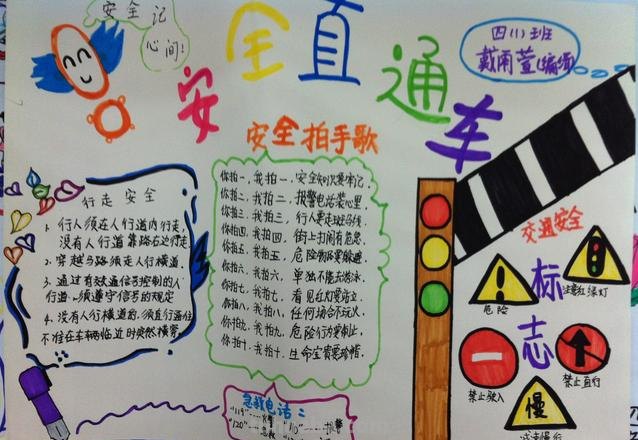 安全记
心间!
安全直通车
四(1)班
戴雨萱(编绘)
安全拍手歌
行走安全
1. 行人须在人行道内行走,
没有人行道靠路右边行走.
2. 穿越马路须走人行横道.
3. 通过有效通信号控制的人
行道.须遵守信号的规定
4. 没有人行横道的.须直行通往
不准在车辆临近时突然横穿.
你拍一,我拍一,安全知识要牢记.
你拍二,我拍二,报警电话装心里.
你拍三,我拍三,行人要走斑马线.
你拍四,我拍四,街上打闹有危急.
你拍五,我拍五,危险物品要躲避.
你拍六,我拍六,单独不能去游泳.
你拍七,我拍七,看见红灯要站立.
你拍八,我拍八,任何场合不玩火.
你拍九,我拍九,危险行为要制止.
你拍十,我拍十,生命宝贵要珍惜.
交通安全
标志
危险
注意红绿灯
禁止驶入
禁止直行
慢
急救电话:
"119"
"120"
报警